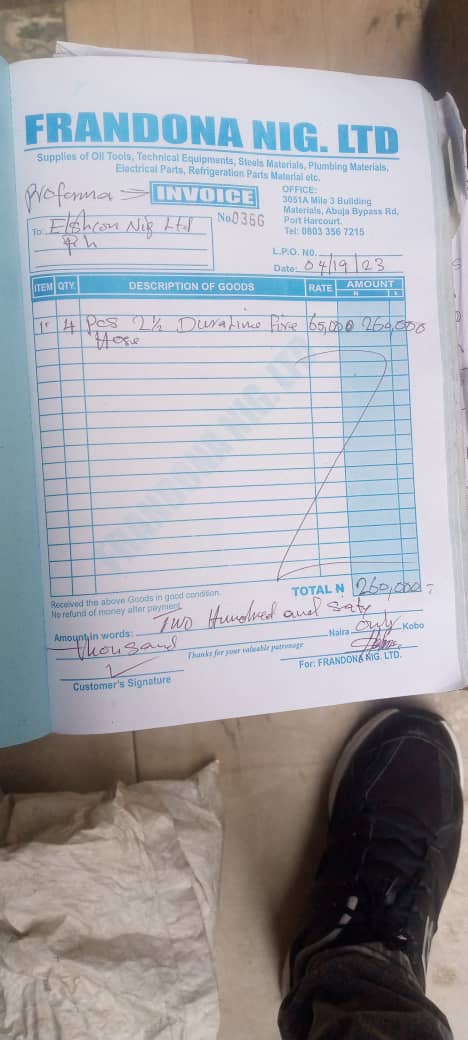 FRANDONA NIG. LTD
Supplies of Oil Tools, Technical Equipments, Steels Materials, Plumbing Materials,
Electrical Parts, Refrigeration Parts Material etc.
Proforma INVOICE
No. 0366
To: Elshcon Nig Ltd
P.h
OFFICE:
3051A Mile 3 Building
Materials, Abuja Bypass Rd,
Port Harcourt.
Tel: 0803 356 7215
L.P.O. NO.
Date: 04/19/23
ITEM QTY. DESCRIPTION OF GOODS RATE AMOUNT
N K
1. 4 Pcs 2½ Duraline Fire 65,000 260,000
Hose
FRANDONA NIG. LTD
Received the above Goods in good condition.
No refund of money after payment
TOTAL N 260,000=
Amount in words: Two Hundred and Sixty
thousand Naira Only Kobo
Thanks for your valuable patronage
Customer's Signature
For: FRANDONA NIG. LTD.